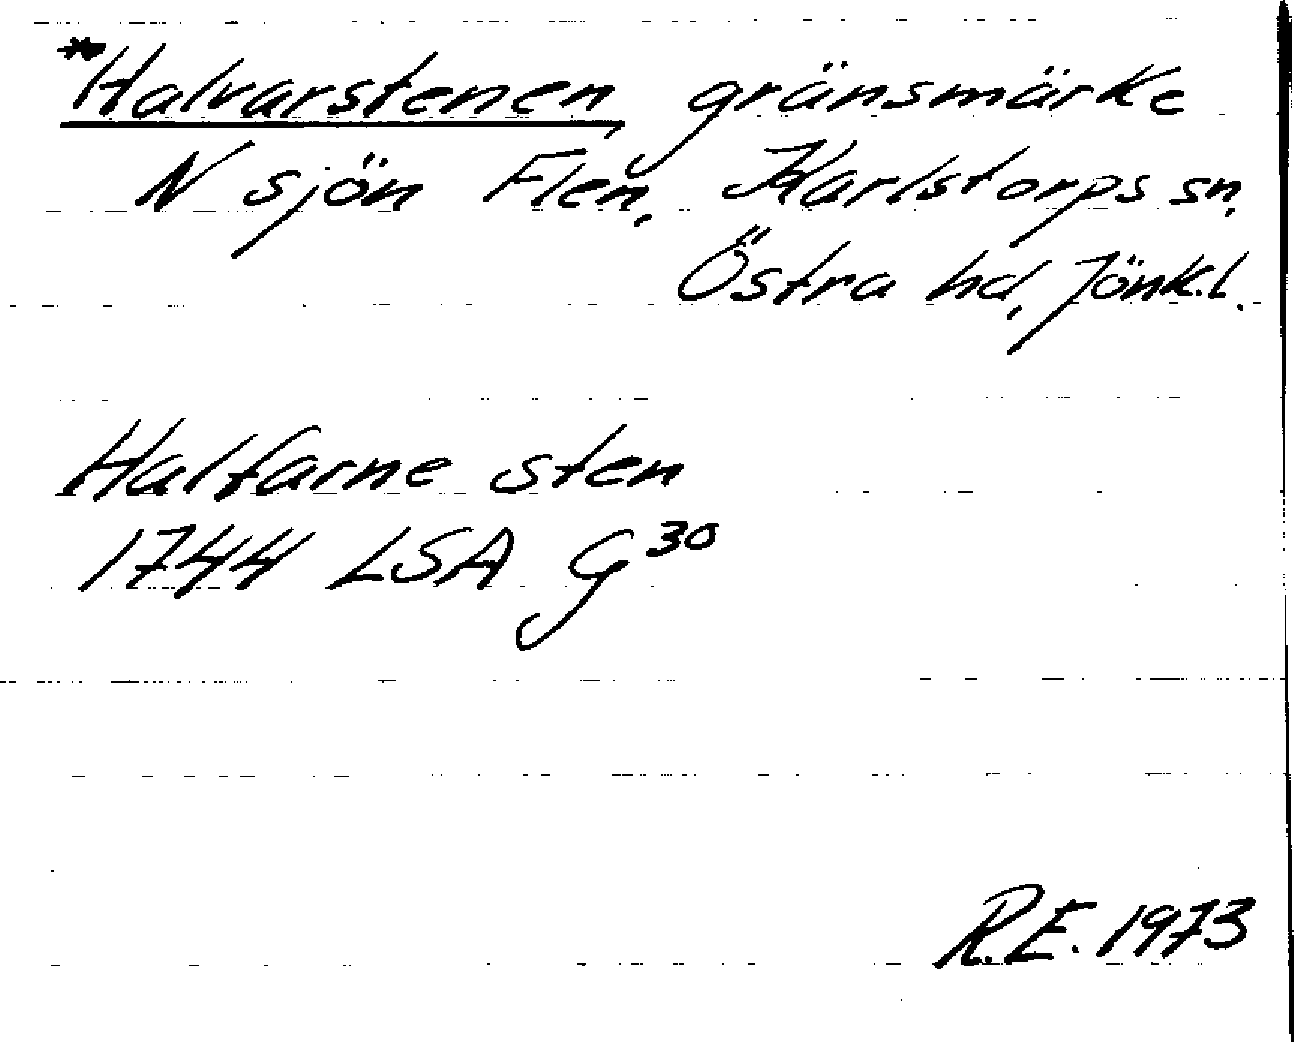 *Halvarstenen, gränsmärke
N sjön Flen, Karlstorps sn,
Östra hd, Jönk.l.
Halfarne sten
1744 LSA G30
R.E. 1973